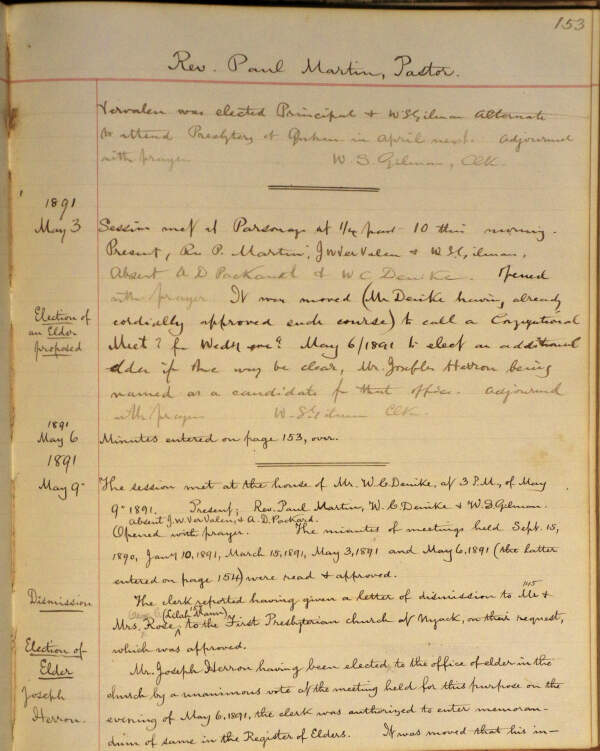 153
Rev. Paul Martin, Pastor.
Vervalen was elected Principal & W S Gilman Alternate
to attend Presbytery at in April next. Adjourned
with prayer W. S. Gilman, Clk.
1891
May 3 Session met at Parsonage at 1/4 past 10 this morning.
Present, Rev P. Martin, J W VerValen & W S Gilman,
Absent A D Packard & W C Denike. Opened
with prayer It was moved (Mr Denike having already
Election of cordially approved such course) to call a Congregational
an Elder Meetg for Wedy eveg May 6/1891 to elect an additional
proposed elder if the way be clear, Mr. Joseph Herron being
named as a candidate for that office. Adjourned
with prayer W. S. Gilman Clk.
1891
May 6 Minutes entered on page 153, over.
1891
May 9 The session met at the house of Mr. W. C. Denike, at 3 P.M., of May
9 1891. Present; Rev. Paul Martin, W. C. Denike & W. S. Gilman.
absent J. W. VerValen, & A. D. Packard.
Opened with prayer. The minutes of meetings held Sept. 15,
1890, Jany 10, 1891, March 15, 1891, May 3, 1891 and May 6, 1891 (the latter
entered on page 154) were read & approved.
Dismission The clerk reported having given a letter of dismission to Mr &
145
Mrs. Rose, to the First Presbyterian church at Nyack, on their request,
which was approved.
Election of Mr. Joseph Herron having been elected to the office of elder in the
Elder church by a unanimous vote at the meeting held for this purpose on the
Joseph evening of May 6, 1891, the clerk was authorized to enter memoran-
Herron. dum of same in the Register of Elders. It was moved that his in-